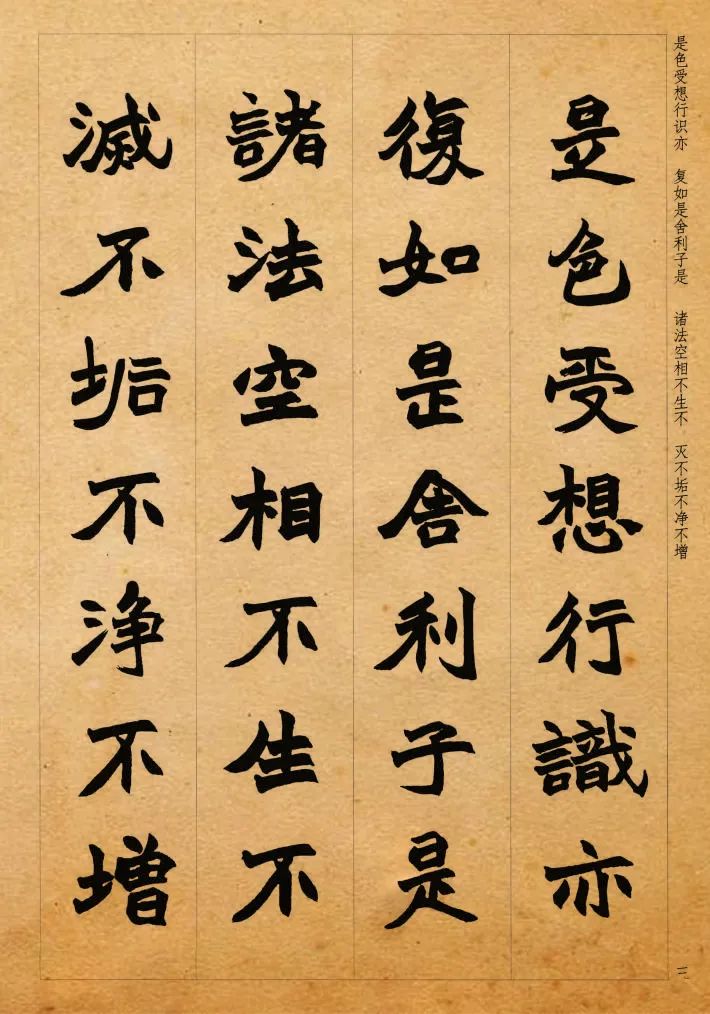 是色受想行识亦 复如是舍利子是 诸法空相不生不 灭不垢不净不增
是色受想行識亦
復如是舍利子是
諸法空相不生不
滅不垢不浄不增
三